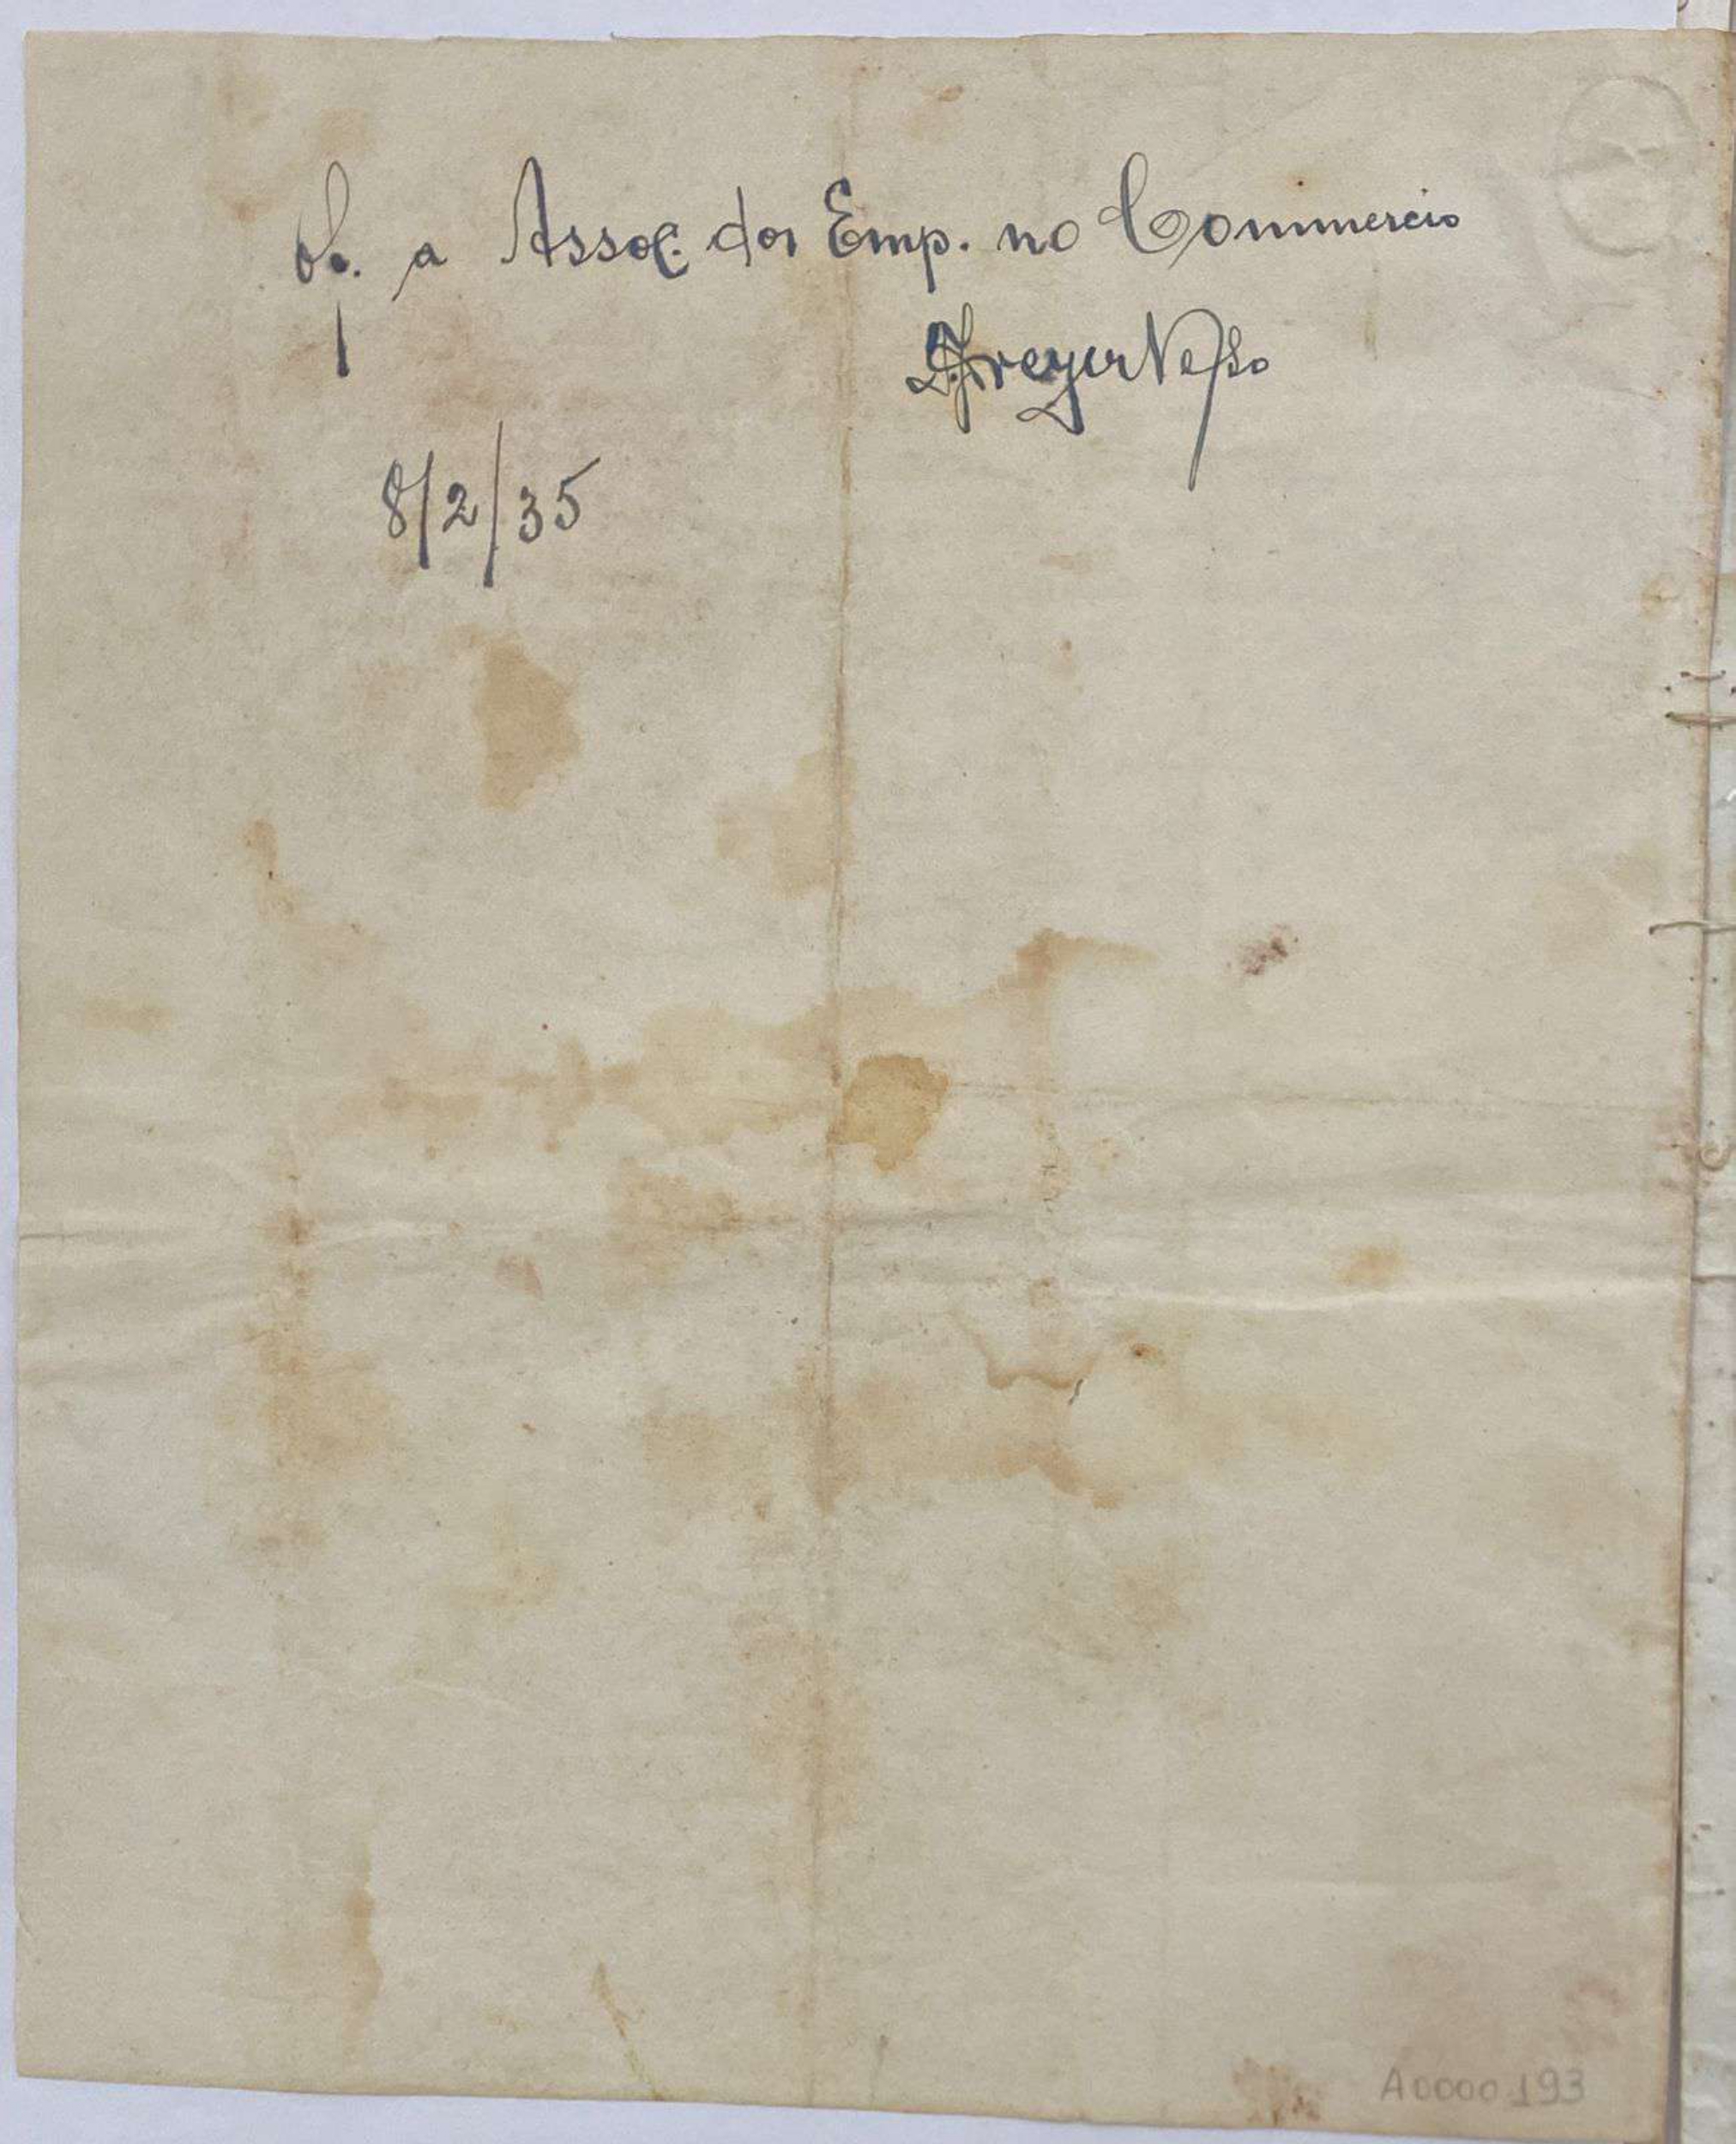 Of. a Assoc. dos Emp. no Commercio
8/2/35
A0000193